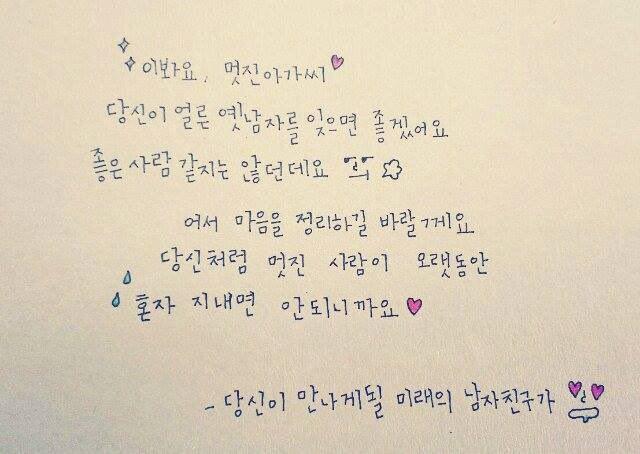 이봐요, 멋진아가씨
당신이 얼른 옛남자를 잊으면 좋겠어요
좋은사람 같지는 않던데요
어서 마음을 정리하길 바랄게요
당신처럼 멋진 사람이 오랫동안
혼자 지내면 안되니까요
- 당신이 만나게될 미래의 남자친구가